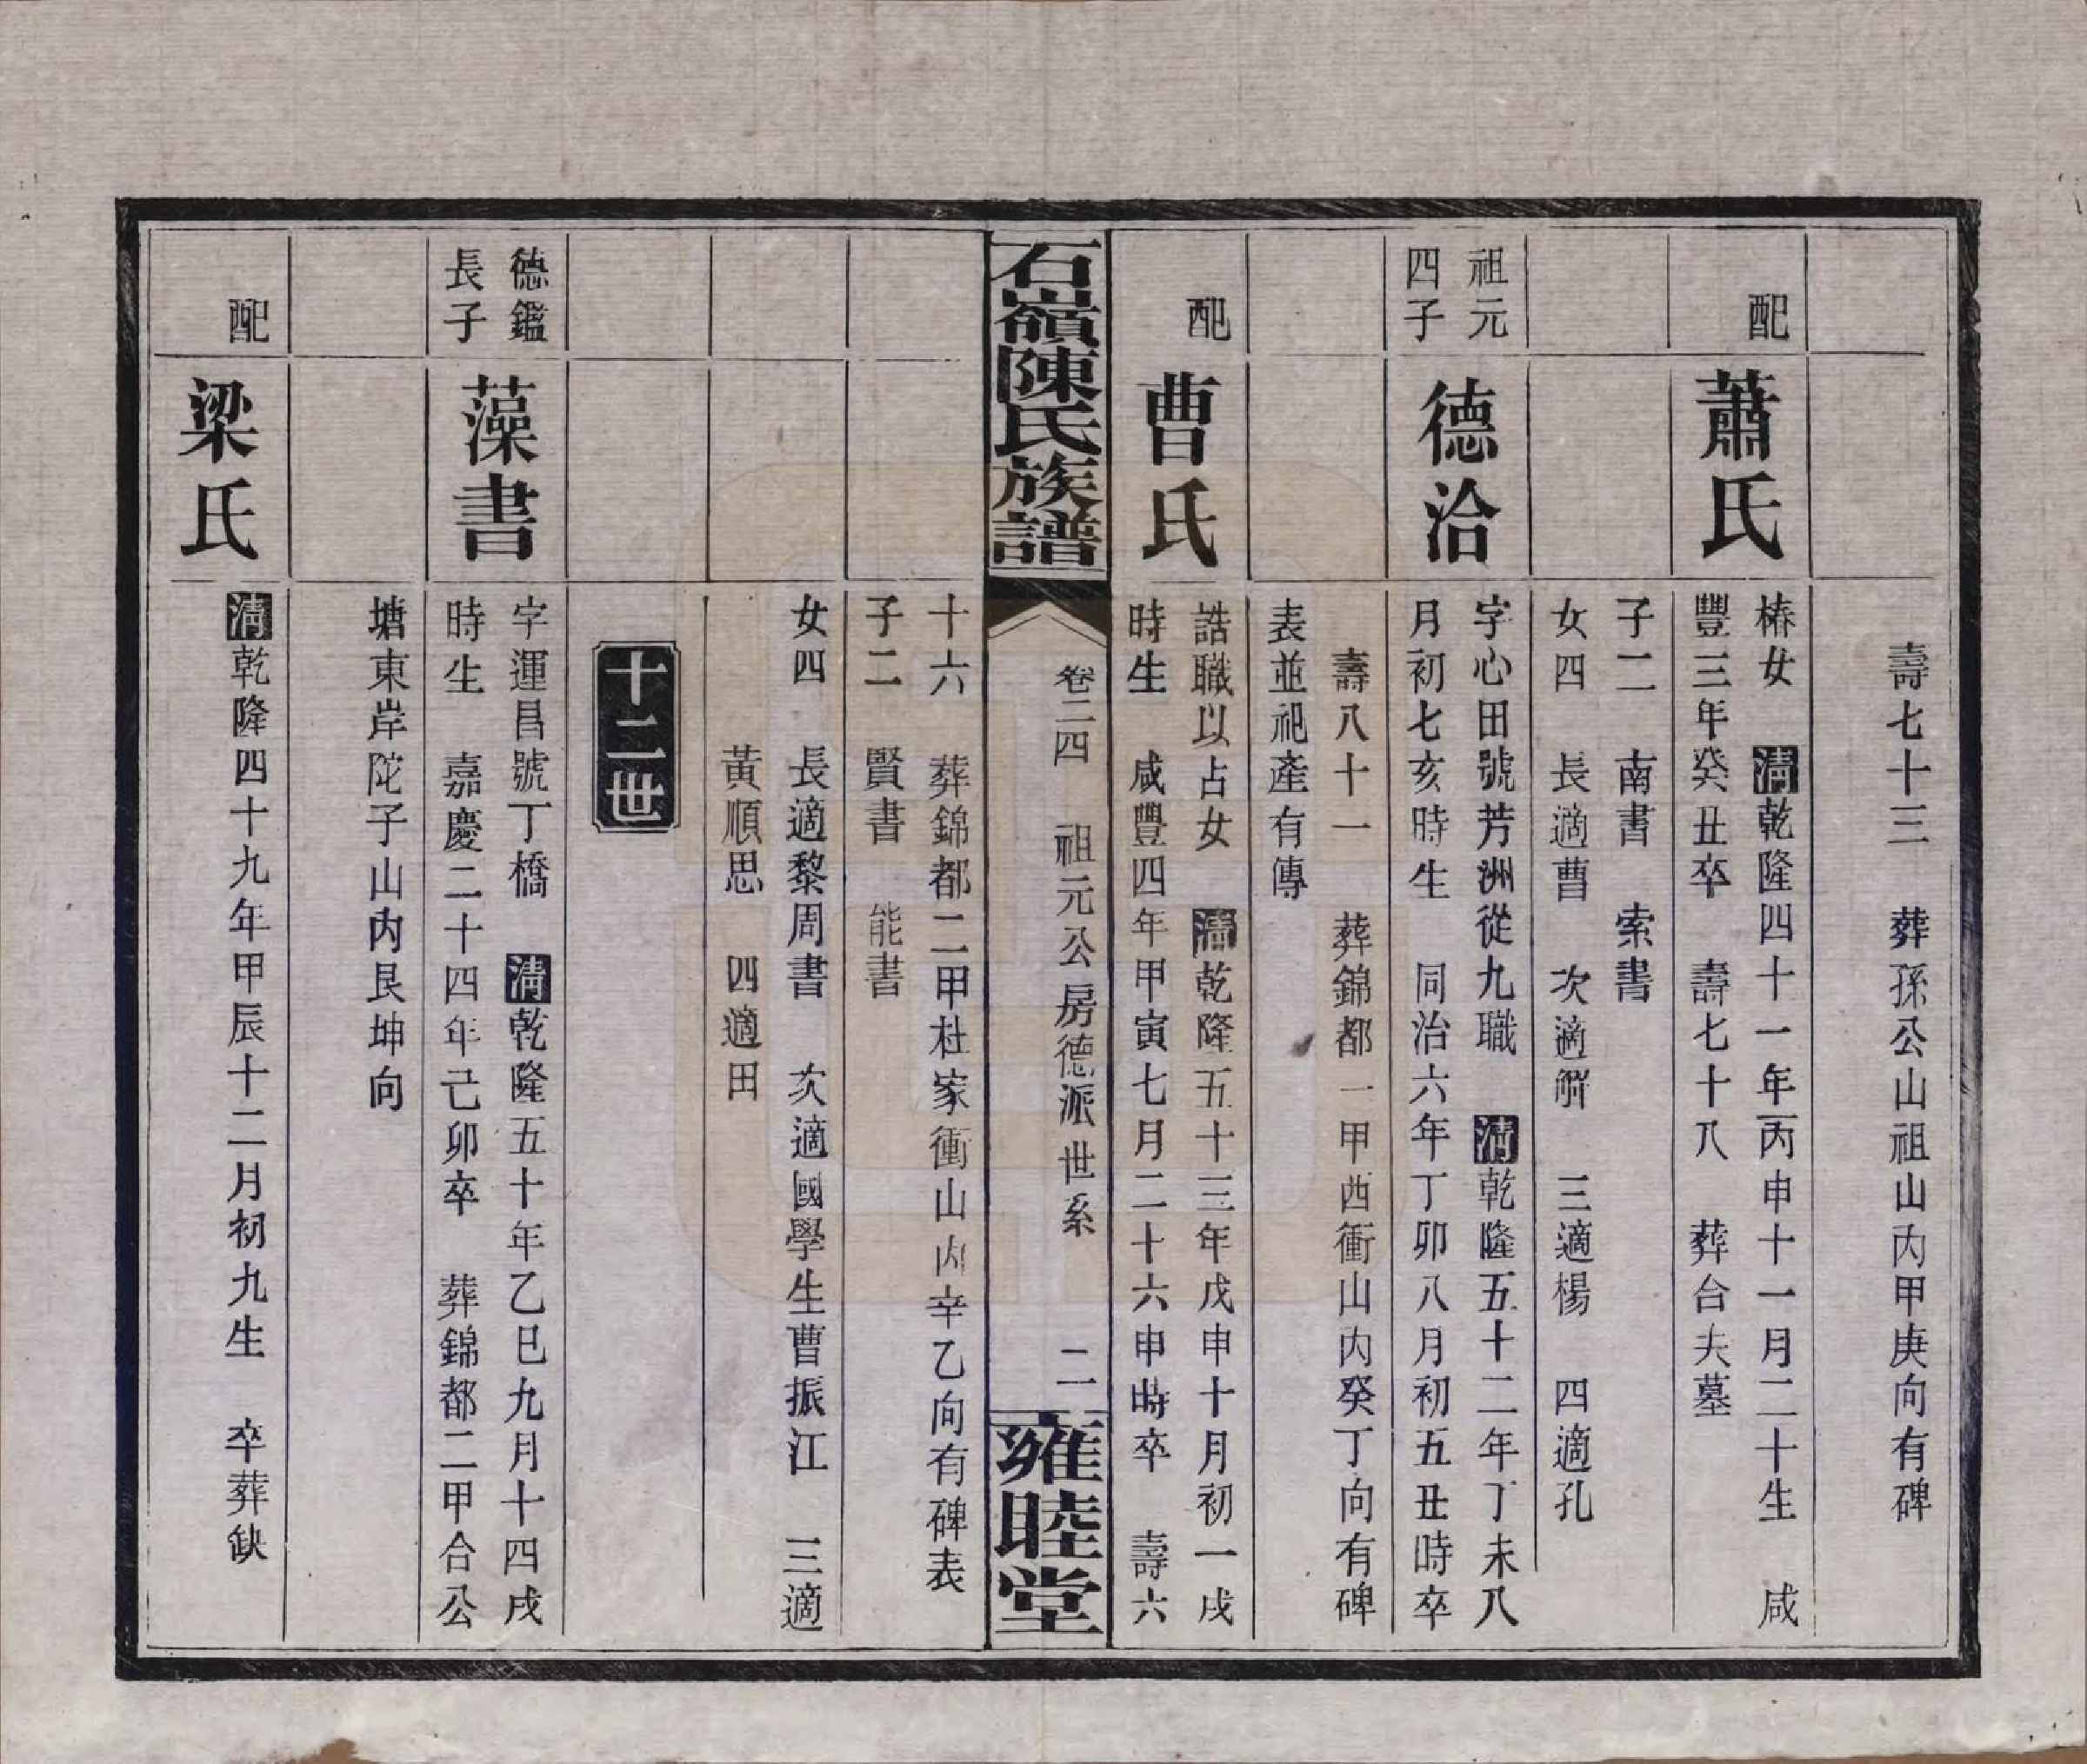 壽七十三　葬孫公山祖山內甲庚向有碑
配
蕭氏
椿女　清乾隆四十一年丙申十一月二十生　咸
豐三年癸丑卒　壽七十八　葬台夫墓
子二　南書　索書
女四　長適曹　次適解　三適楊　四適孔
祖元
四子
德洽
字心田號芳洲從九職　清乾隆五十二年丁未八
月初七亥時生　同治六年丁卯八月初五丑時卒
壽八十一　葬錦都一甲西衝山內癸丁向有碑
表並祀產有傳
配
曹氏
誥職以占女　清乾隆五十三年戊申十月初一戌
時生　咸豐四年甲寅七月二十六申時卒　壽六
石嶺陳氏族譜
卷二四　祖元公房德派世系　二
雍睦堂
十六　葬錦都二甲杜家衝山內辛乙向有碑表
子二　賢書　能書
女四　長適黎周書　次適國學生曹振江　三適
黃順思　四適田
十二世
德鑑
長子
藻書
字運昌號丁橋　清乾隆五十年乙巳九月十四戌
時生　嘉慶二十四年己卯卒　葬錦都二甲合公
塘東岸陀子山內艮坤向
配
梁氏
清乾隆四十九年甲辰十二月初九生　卒葬缺